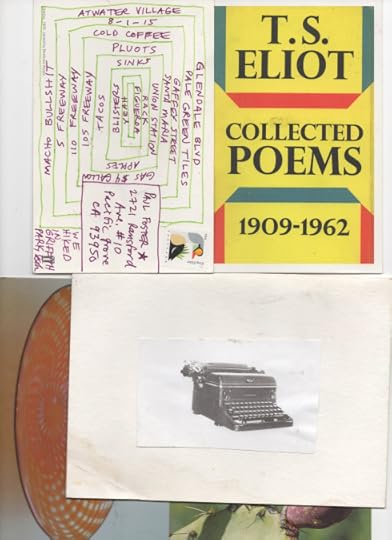 ATWATER VILLAGE
8-1-15
COLD COFFEE
PLUOTS
SINKS
GLENDALE BLVD
PALE GREEN TILES
GAFFEY STREET
SANTA MARIA
UNION STATION
RACKS
FIGUEROA
BLISTERS
TACOS
101 FREEWAY
110 FREEWAY
5 FREEWAY
MACHO BULLSHIT
APPLES
GAS $4 GALLON
WE
HIKED
IN
GRIFFITH
PARK
PAUL FOSTER
2721 Ransford
Ave #10
Pacific Grove
CA 93950
T.S.
ELIOT
COLLECTED
POEMS
1909-1962